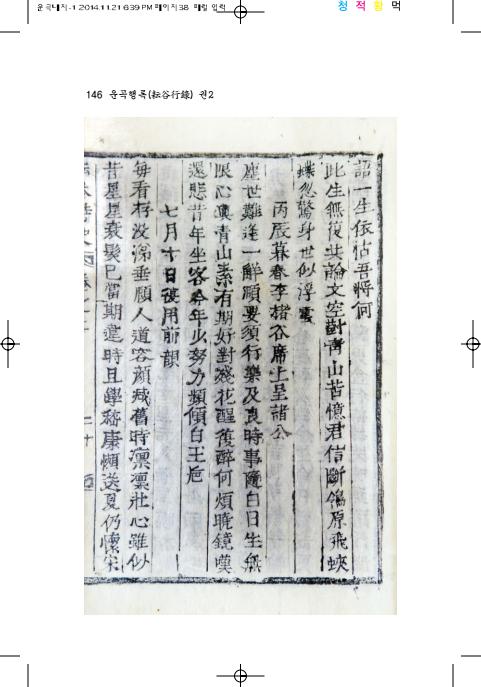 운곡내지-1 2014.11.21 6:39 PM 페이지38 메릴 입력
청 적 황 먹
146 운곡행록(耘谷行錄) 권2
語一生依怙吾將何
此生無復共論文空對青山苦憶君信斷鴒原飛蛺
蝶忽驚身世似浮雲
丙辰暮春李楮谷席上呈諸公
塵世難逢一解頤要須行樂及良時事隨白日生無
限心與青山素有期好對殘花醒復醉何煩曉鏡嘆
還悲昔年坐客今年少努力頻傾白玉巵
七月十日復用前韻
每看存沒涕垂頤人道容顔減舊時凛凛壯心雖似
昔星星衰髮已當期違時且學嵇康懶送夏仍懷宋